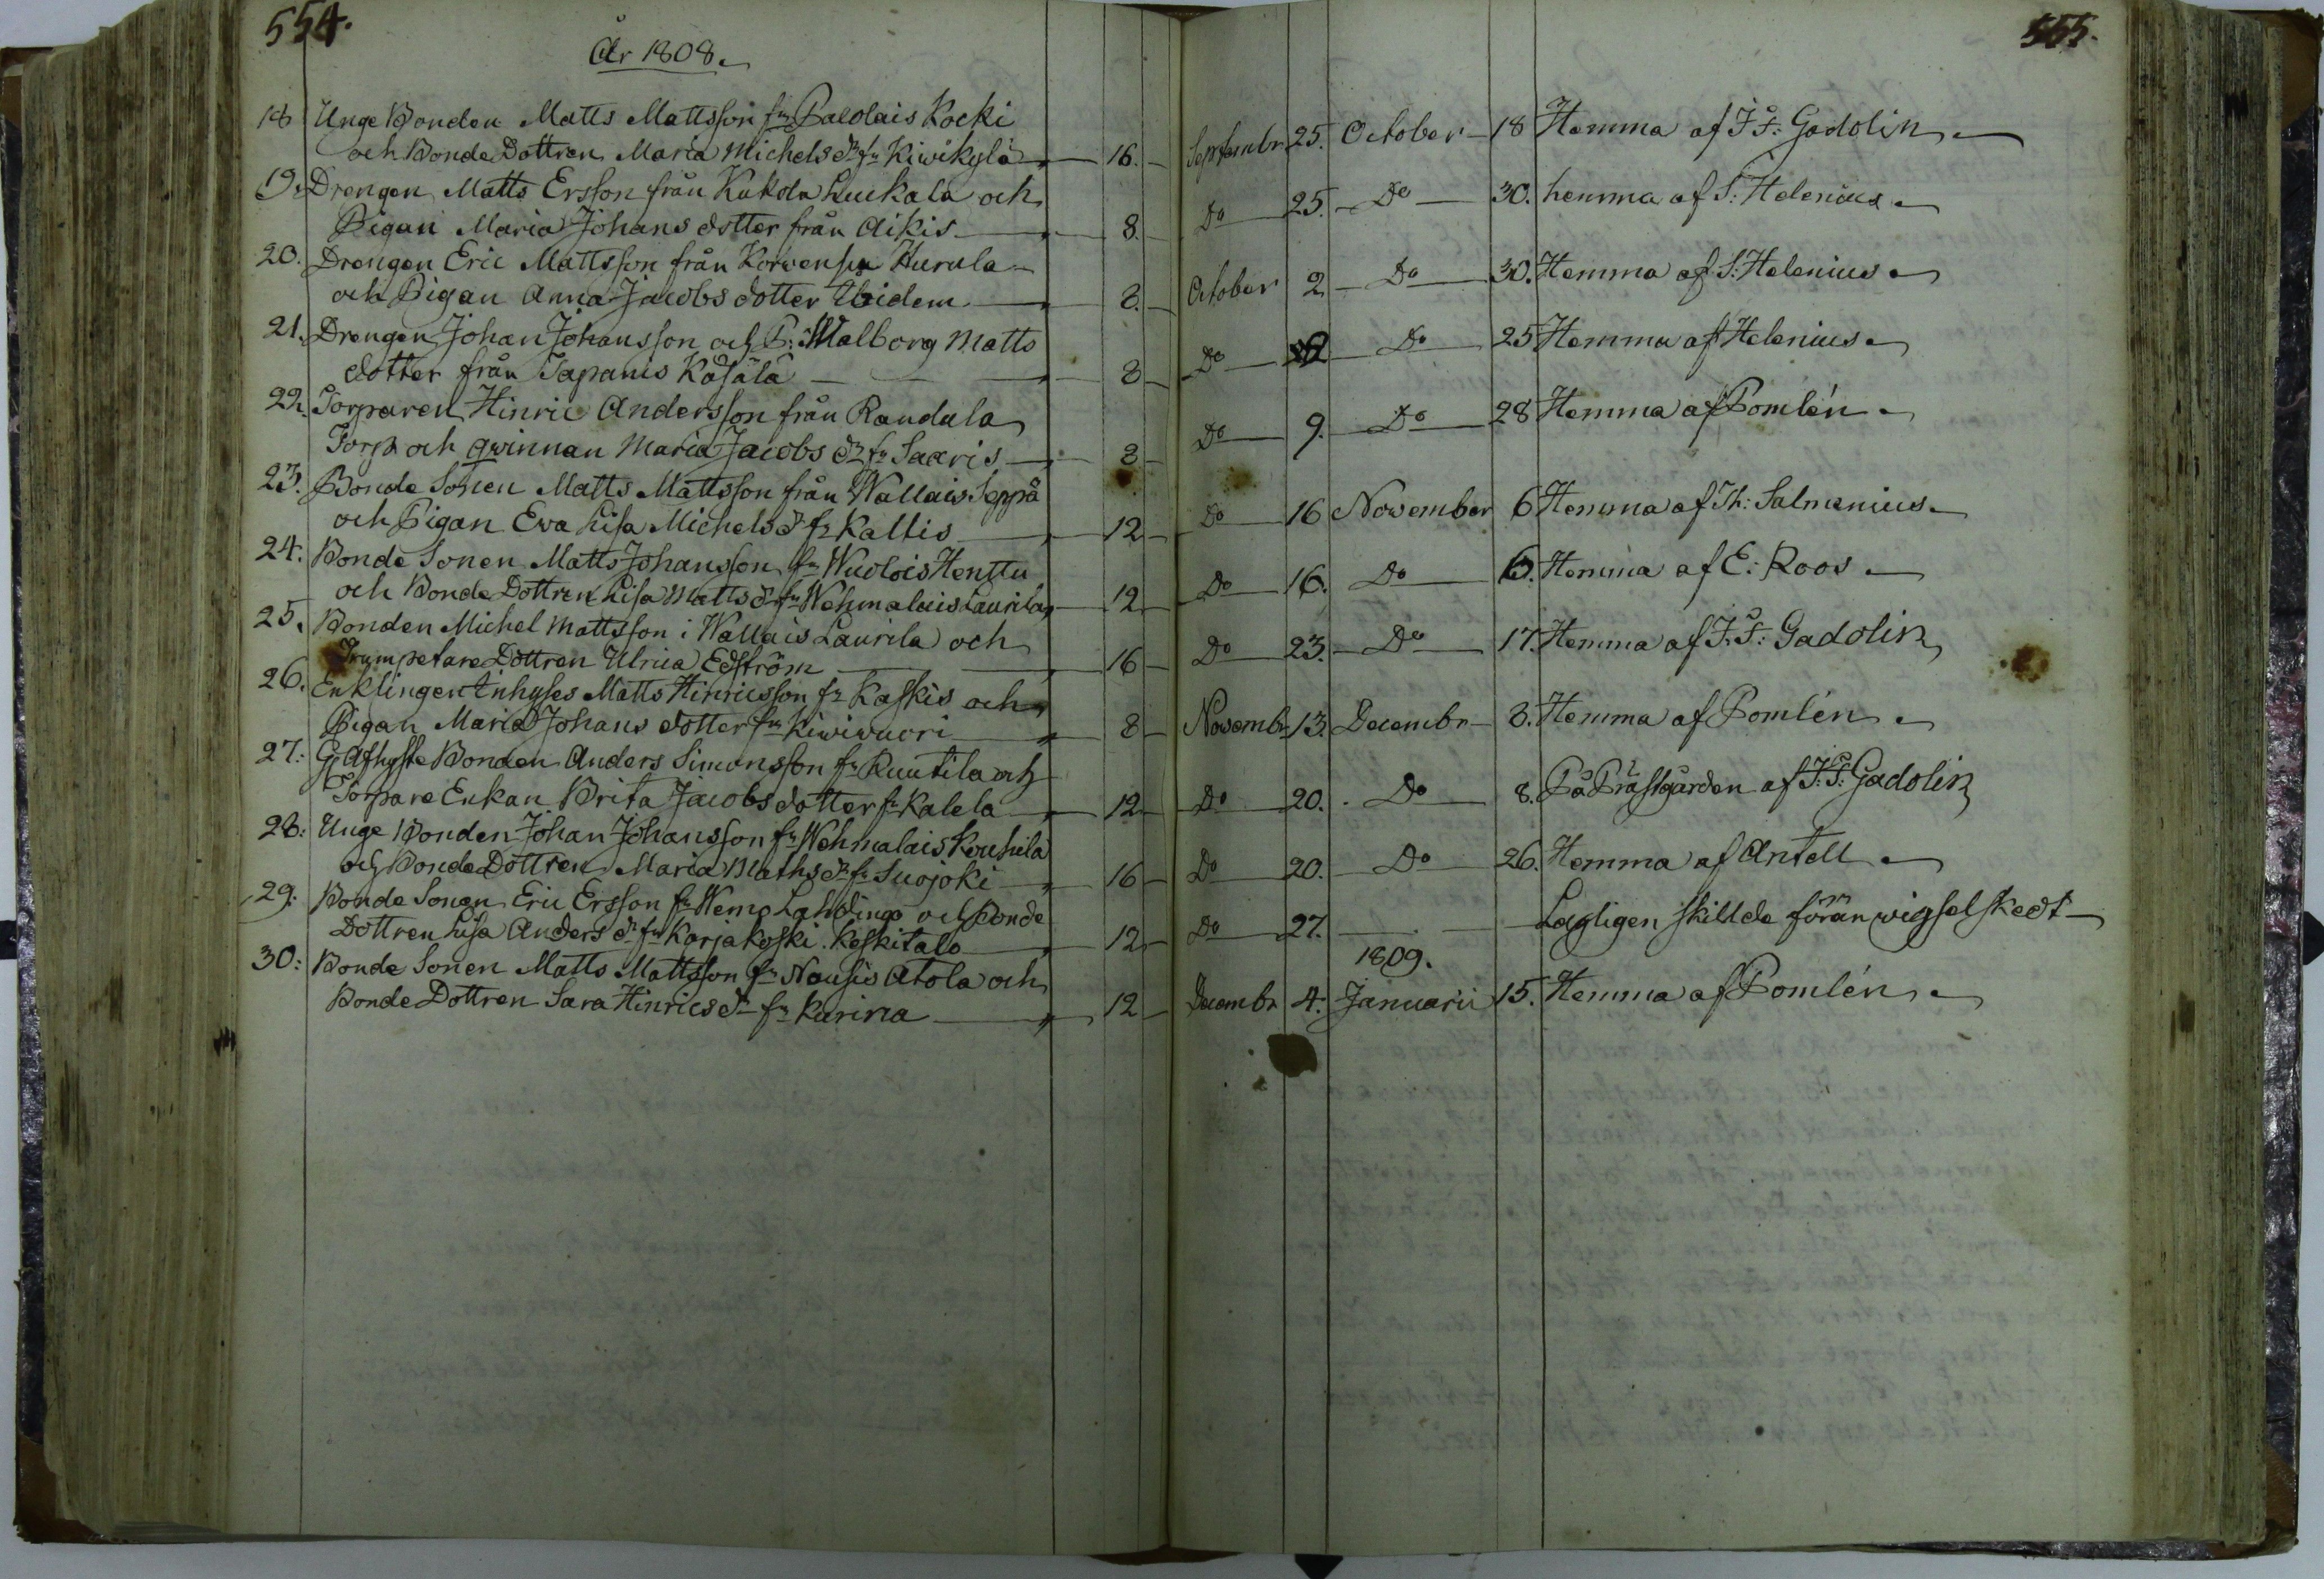 554.
År 1808.
18 Unge Bonden Matts Mattsson fr Palolais Kocki
och Bonde Dottren Maria Michels dr fr Kiwikylä 16.
19. Drengen Matts Ersson från Kukola Luckala och
Pigan Maria Johans dotter från Aikis 8.
20. Drengen Eric Mattsson från Korvensu Hurula
och Pigan Anna Jacobs dotter Ibidem 8.
21. Drengen Johan Johansson och P: Walborg Matts
dotter från Tapanis Kåsälä 8
22. Torparen Hinric Andersson från Randala
Torp och qwinnan Maria Jacobs dr fr Saaris 8
23. Bonde Sonen Matts Mattsson från Wallais Seppä
och Pigan Eva Lisa Michels dr fr Kallis 12
24. Bonde Sonen Matts Johansson fr Wuolois Henttu
och Bonde Dottren Lisa Matts dr fr Wehmalais Laurila 12
25. Bonden Michel Mattsson i Wallais Laurila och
Trumpetare Dottren Ulrica Edström 16
26. Enklingen Inhyses Matts Hinricsson fr Kaskis och
Pigan Maria Johans dotter fr Kiwiwuori 8
27: G Afhyste Bonden Anders Simonsson fr Ruutila och
Torpare Enkan Brita Jacobs dotter fr Kalela 12
28: Unge Bonden Johan Johansson fr Wehmalais Kouhila
och Bonde Dottren Maria Maths dr fr Suojoki 16
29: Bonde Sonen Eric Ersson fr Wemo Lahdingo och Bonde
Dottren Lisa Anders dr fr Karjakoski Keskitalo 12
30: Bonde Sonen Matts Mattsson fr Nousis Atola och
Bonde Dottren Sara Hinrics dr fr Kurina 12
555.
Septembr 25. October 18 Hemma af J. S: Gadolin
Do 25. Do 30. hemma af S: Helenius
October 2 Do 30. Hemma af S: Helenius
Do Do 25 Hemma af Helenius
Do 9. Do 28 Hemma af Pomlén
Do 16 November 6 Hemma af Th: Salmenius
Do 16. Do 6. Hemma af E: Roos
Do 23. Do 17. Hemma af J. S: Gadolin
Novembr 13. Decembr 8. Hemma af Pomlén
Do 20. Do 8. På Prästgården af J. S: Gadolin
Do 20. Do 26. Hemma af Antell
Do 27. Lagligen skillde förän wigsel skedt
1809.
Decembr 4. Januarii 15. Hemma af Pomlén